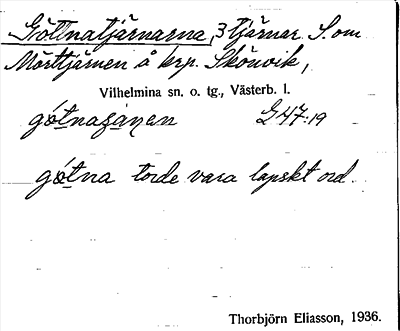 Göttnatjärnarna, 3 tjärnar S. om
Mörttjärnen å krp. Skönvik,
Vilhelmina sn. o. tg., Västerb. l.
G 47:19
gótna torde vara lapskt ord.
Thorbjörn Eliasson, 1936.